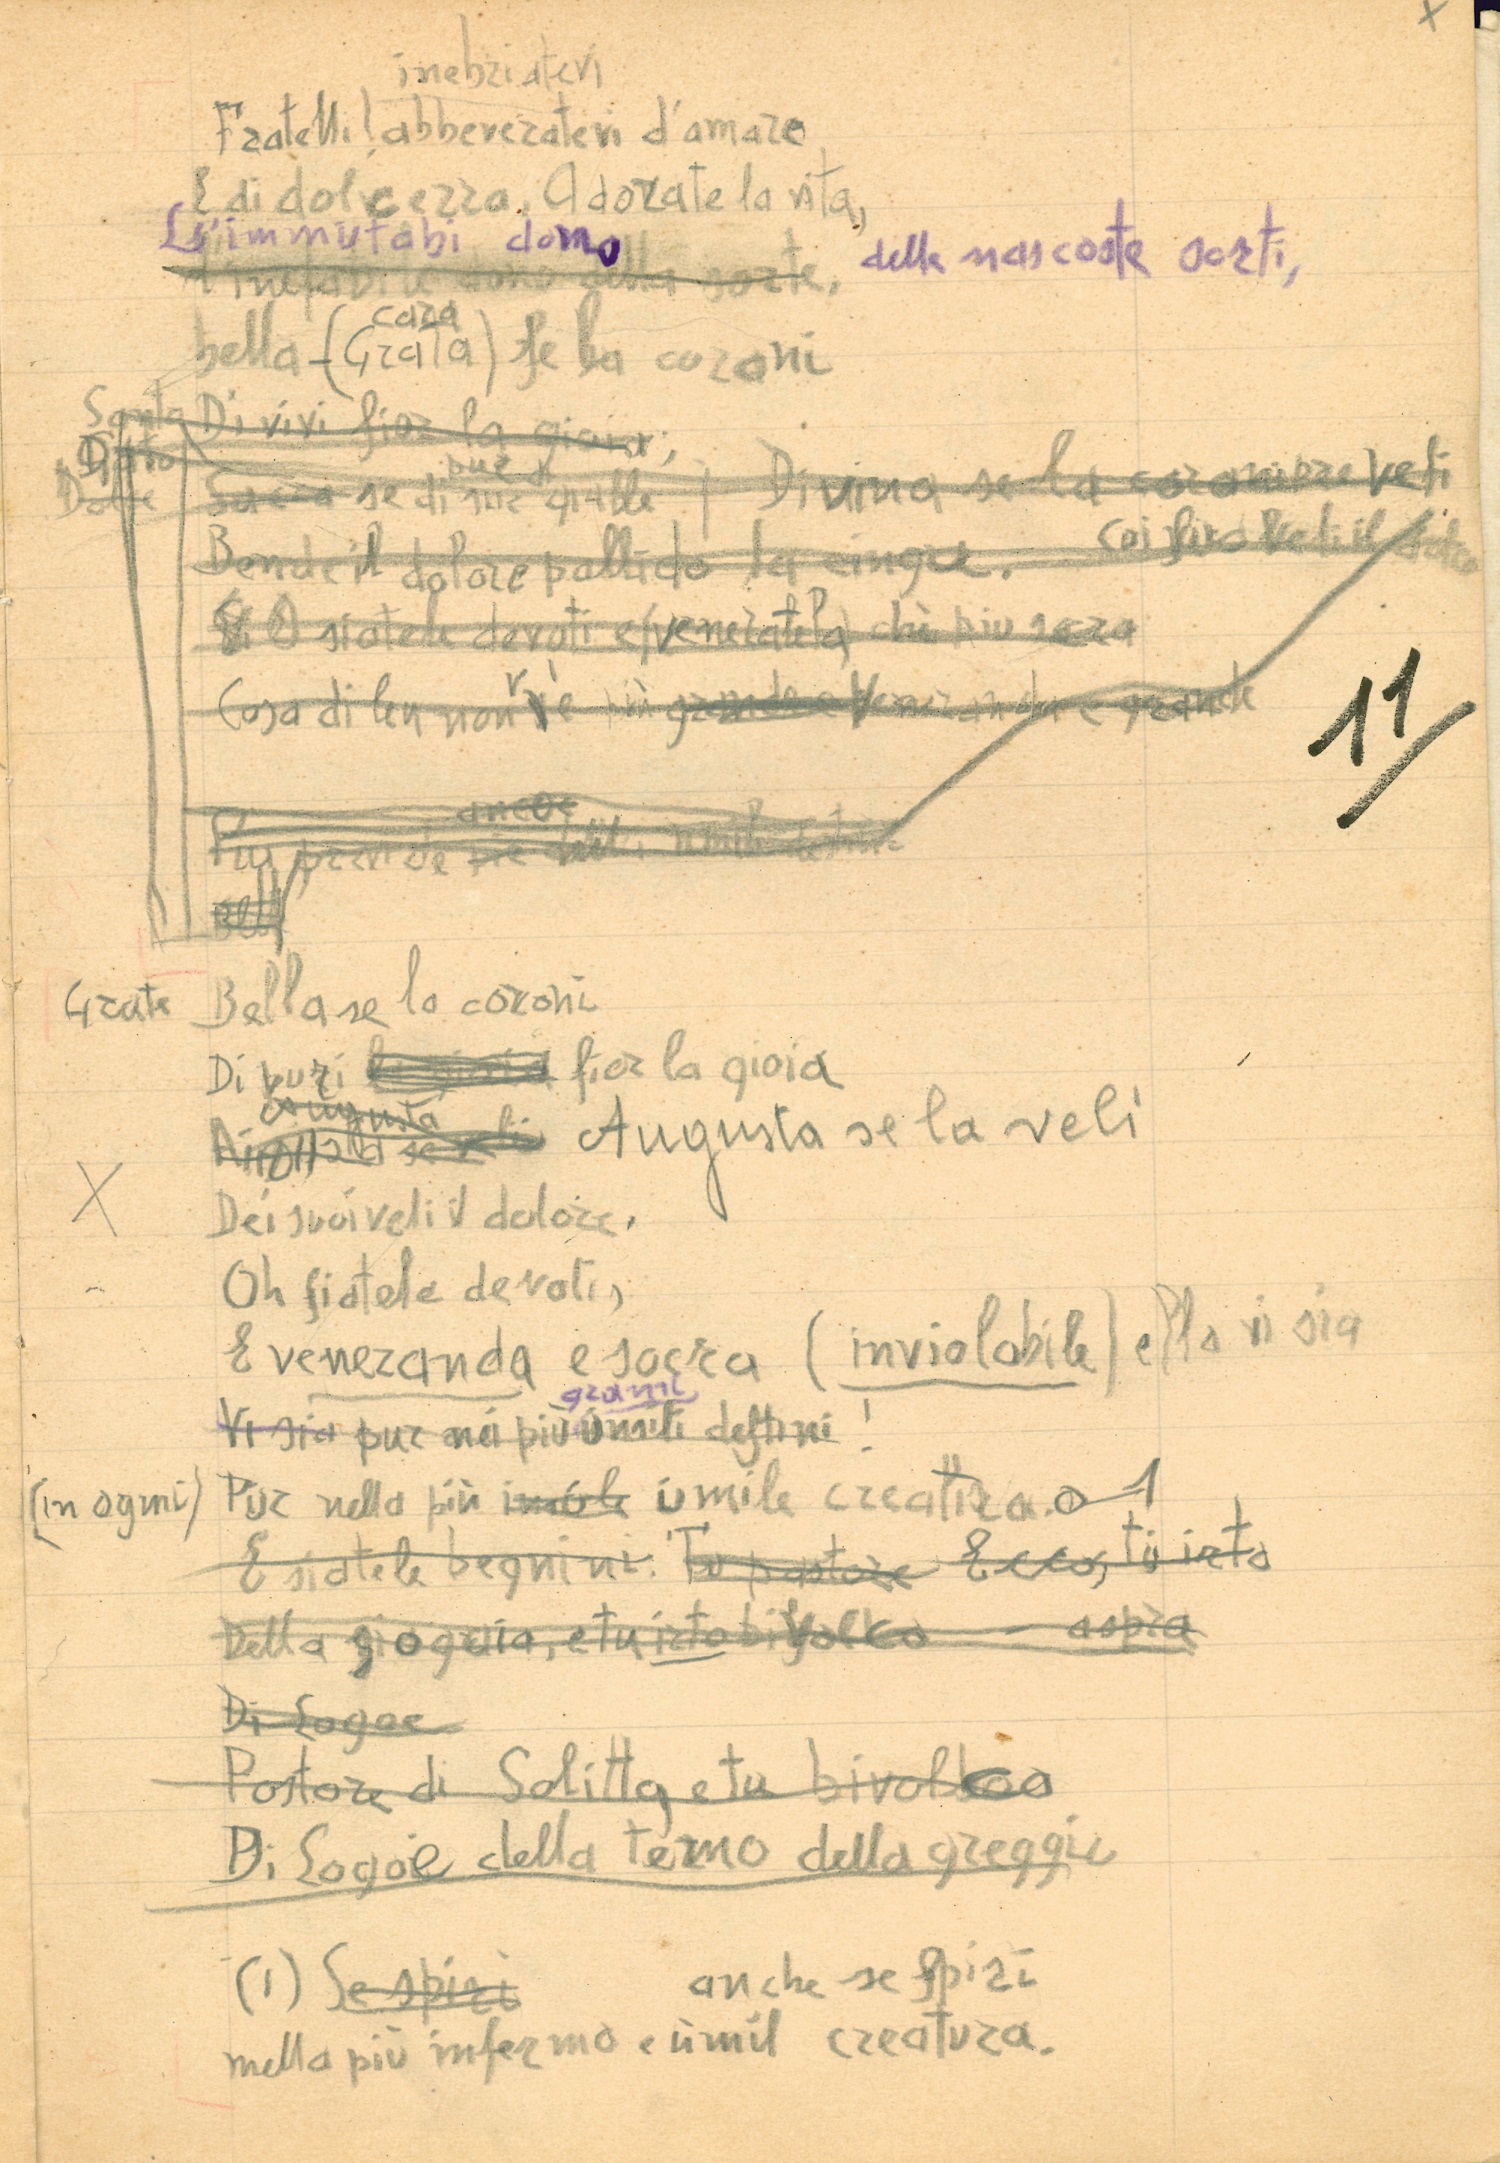 inebriatevi
Fratelli! abbeveratevi d'amare
E di dolcezza. Adorate la vita,
L'immutabi dono delle nascoste sorti,
L'inefabile dono della sorte,
cara
bella - (Grata) se la coroni
Santa Di vivi fior la gioia;
pur
Dolce Sacra se di sue gialle | Divina se la coroni
Bende il dolore pallido la cinge.
O siatele devoti e (veneratela) chè piu sacra
Cosa di leu non v'è più grande e veneranda e grande
anche
Più umili
Grate Bella se la coroni
Di puri fior la gioia
Augusta
Augusta se la veli
X Dei suoi veli il dolore.
Oh siatele devoti,
E veneranda e sacra (inviolabile) ella vi sia
grami
Vi sia pur nei più umili destini!
(in ogni) Pur nella più umile creatura. 1
E siatele begnini. Tu pastore Ecco, tu irto
Della giogaia, e tu irto bifolco aspra
Di Logoe
Pastore di Solitta e tu bivolco
Di Logoie della termo della greggie
(1) Se spiri anche se spiri
nella più infermo e umil creatura.
11
X